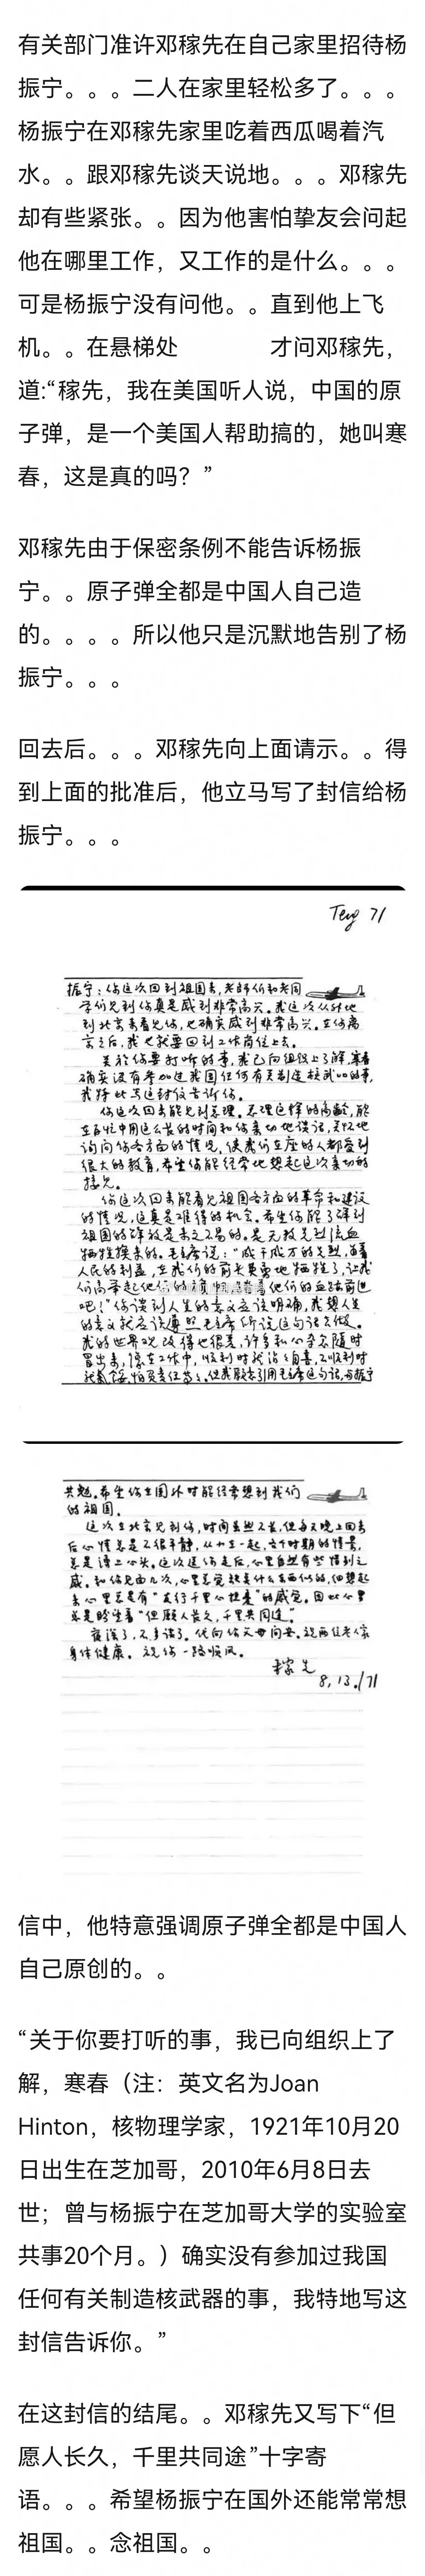 有关部门准许邓稼先在自己家里招待杨
振宁。。。二人在家里轻松多了。。。
杨振宁在邓稼先家里吃着西瓜喝着汽
水。。跟邓稼先谈天说地。。。邓稼先
却有些紧张。。因为他害怕挚友会问起
他在哪里工作，又工作的是什么。。。
可是杨振宁没有问他。。直到他上飞
机。。在悬梯处 才问邓稼先，
道:“稼先，我在美国听人说，中国的原
子弹，是一个美国人帮助搞的，她叫寒
春，这是真的吗？”
邓稼先由于保密条例不能告诉杨振
宁。。原子弹全都是中国人自己造
的。。。。所以他只是沉默地告别了杨
振宁。。。
回去后。。。邓稼先向上面请示。。得
到上面的批准后，他立马写了封信给杨
振宁。。。
Teng 71
振宁：你这次回到祖国来，老师们和老同
学们见到你真是感到非常高兴。我这次从外地
到北京来看见你，也确实感到非常高兴。在你离
京之后，我也就要回到工作岗位上去。
关于你要打听的事，我已向组织上了解，寒春
确实没有参加过我国任何有关制造核武器的事，
我特地写这封信告诉你。
你这次回来能见到总理。总理这样的高龄，能
在百忙中用这么长的时间和你亲切地谈话，关切地
询问你各方面的情况，使我们在座的人都受到
很大的教育，希望你能经常地想起这次亲切的
接见。
你这次回来能看见祖国各方面的革命和建设
的情况，这真是难得的机会。希望你能了解到
祖国的解放是来之不易的。是无数先烈流血
牺牲换来的。毛主席说：“成千成万的先烈，为着
人民的利益，在我们的前头英勇地牺牲了，让我
们高举起他们的旗帜，踏着他们的血迹前进
吧！”你谈到人生的意义应该明确，我想人生
的意义就应该遵照毛主席所说这句话去做。
我的世界观改得也很差，许多私心杂念随时
冒出来，像在工作中，顺利时就沾沾自喜，不顺利时
就气馁，怕负责任等等。但我愿意引用毛主席这句话，与振宁
共勉。希望你在国外时能经常想到我们
的祖国。
这次在北京见到你，时间虽然不长，但每天晚上回来
后心情总是不很平静，从小在一起，各个时期的情景，
总是涌上心头。这次送你走后，心里自然有些惜别之
感。和你见面几次，心里总觉缺点什么东西似的，细想起
来心里总是有“友行千里心担忧”的感觉。因此心里
总是盼望着“但愿人长久，千里共同途”。
夜深了，不多谈了。代向你父母问安。祝两位老人家
身体健康。祝你一路顺风。
稼先
8.13./71
信中，他特意强调原子弹全都是中国人
自己原创的。。
“关于你要打听的事，我已向组织上了
解，寒春（注：英文名为Joan
Hinton，核物理学家，1921年10月20
日出生在芝加哥，2010年6月8日去
世；曾与杨振宁在芝加哥大学的实验室
共事20个月。）确实没有参加过我国
任何有关制造核武器的事，我特地写这
封信告诉你。”
在这封信的结尾。。邓稼先又写下“但
愿人长久，千里共同途”十字寄
语。。。希望杨振宁在国外还能常常想
祖国。。念祖国。。